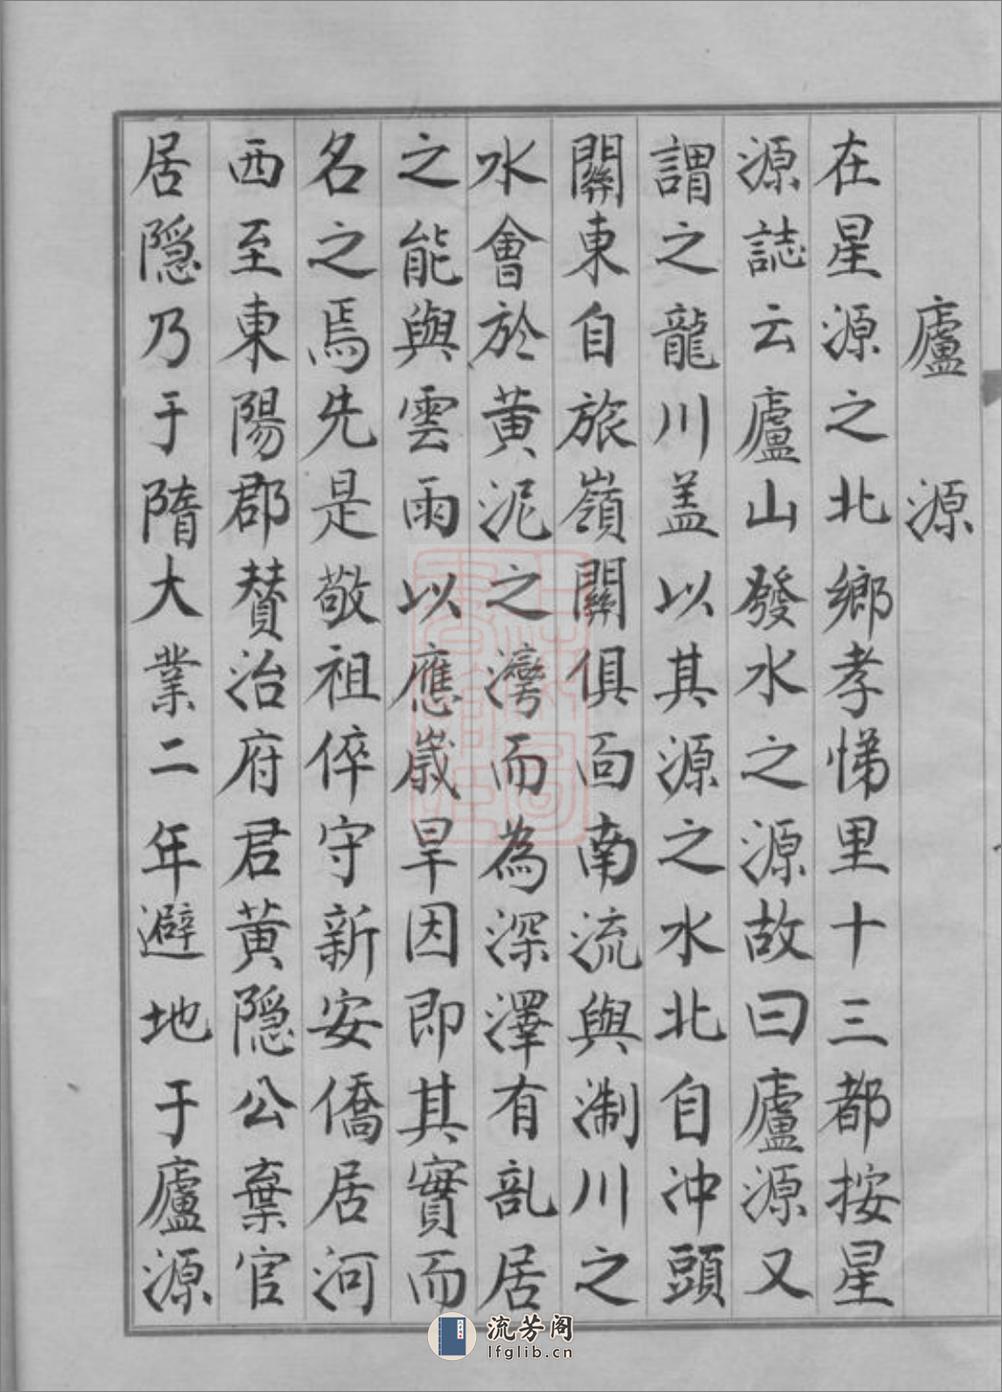 廬源
在星源之北鄉孝悌里十三都按星
源誌云廬山發水之源故曰廬源又
謂之龍川盖以其源之水北自沖頭
關東自旅嶺關俱靣南流與淛川之
水會於黄泥之灣而為深澤有乱居
之能與雲雨以應歲旱因即其實而
名之焉先是敬祖倅守新安僑居河
西至東陽郡賛治府君黄隱公棄官
居隱乃于隋大業二年避地于廬源
流芳阁
lfglib.cn